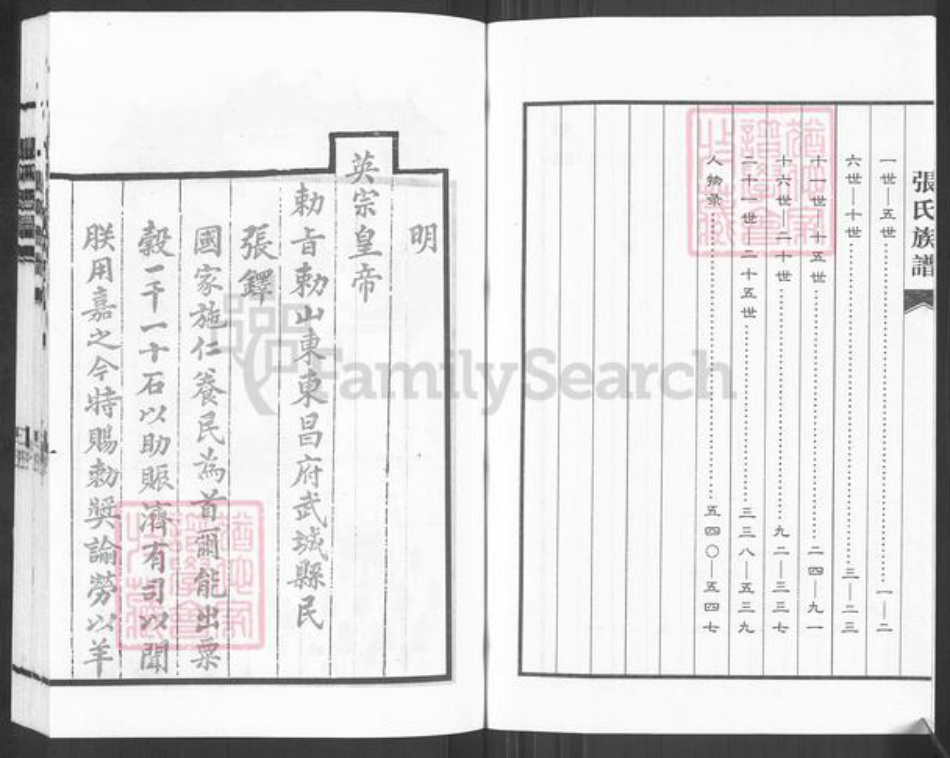 張氏族譜
一世—五世……一—二
六世—十世……三—二三
十一世—十五世……二四—九一
十六世—二十世……九二—三三七
二十一世—二十五世……三三八—五三九
人物录……五四〇—五四七
明
英宗皇帝
勅旨勅山東東昌府武城縣民
張鐸
國家施仁養民為首爾能出粟
穀一千一十石以助賑濟有司以聞
朕用嘉之今特賜勅奬諭勞以羊
FamilySearch